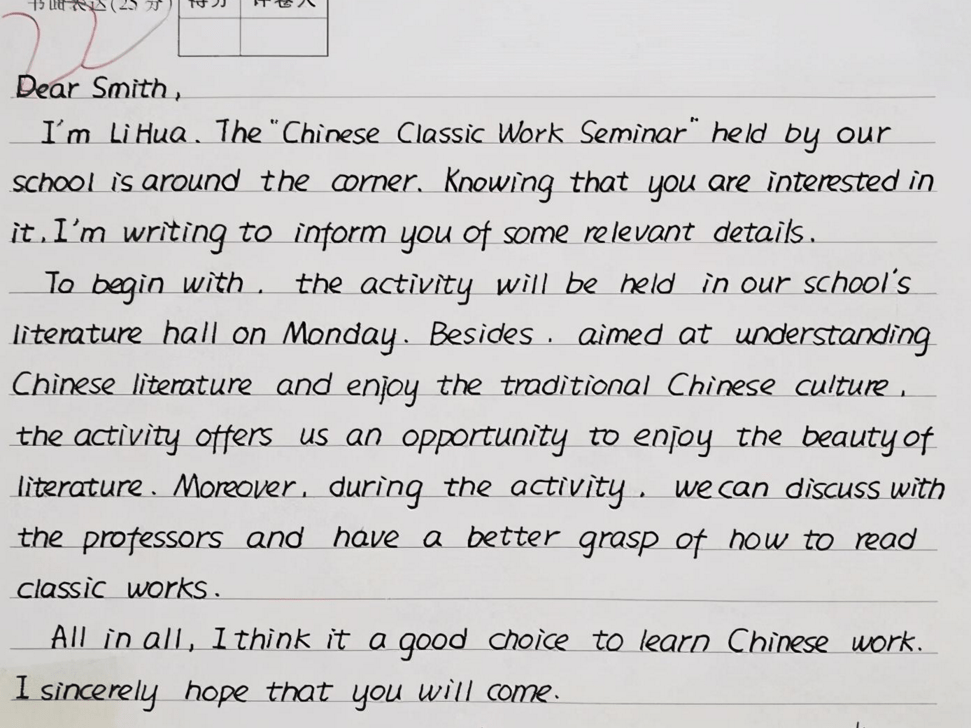 书面表达(25分) 得分 评卷人
22
Dear Smith,
I'm Li Hua. The "Chinese Classic Work Seminar" held by our
school is around the corner. Knowing that you are interested in
it, I'm writing to inform you of some relevant details.
To begin with, the activity will be held in our school's
literature hall on Monday. Besides, aimed at understanding
Chinese literature and enjoy the traditional Chinese culture,
the activity offers us an opportunity to enjoy the beauty of
literature. Moreover, during the activity, we can discuss with
the professors and have a better grasp of how to read
classic works.
All in all, I think it a good choice to learn Chinese work.
I sincerely hope that you will come.